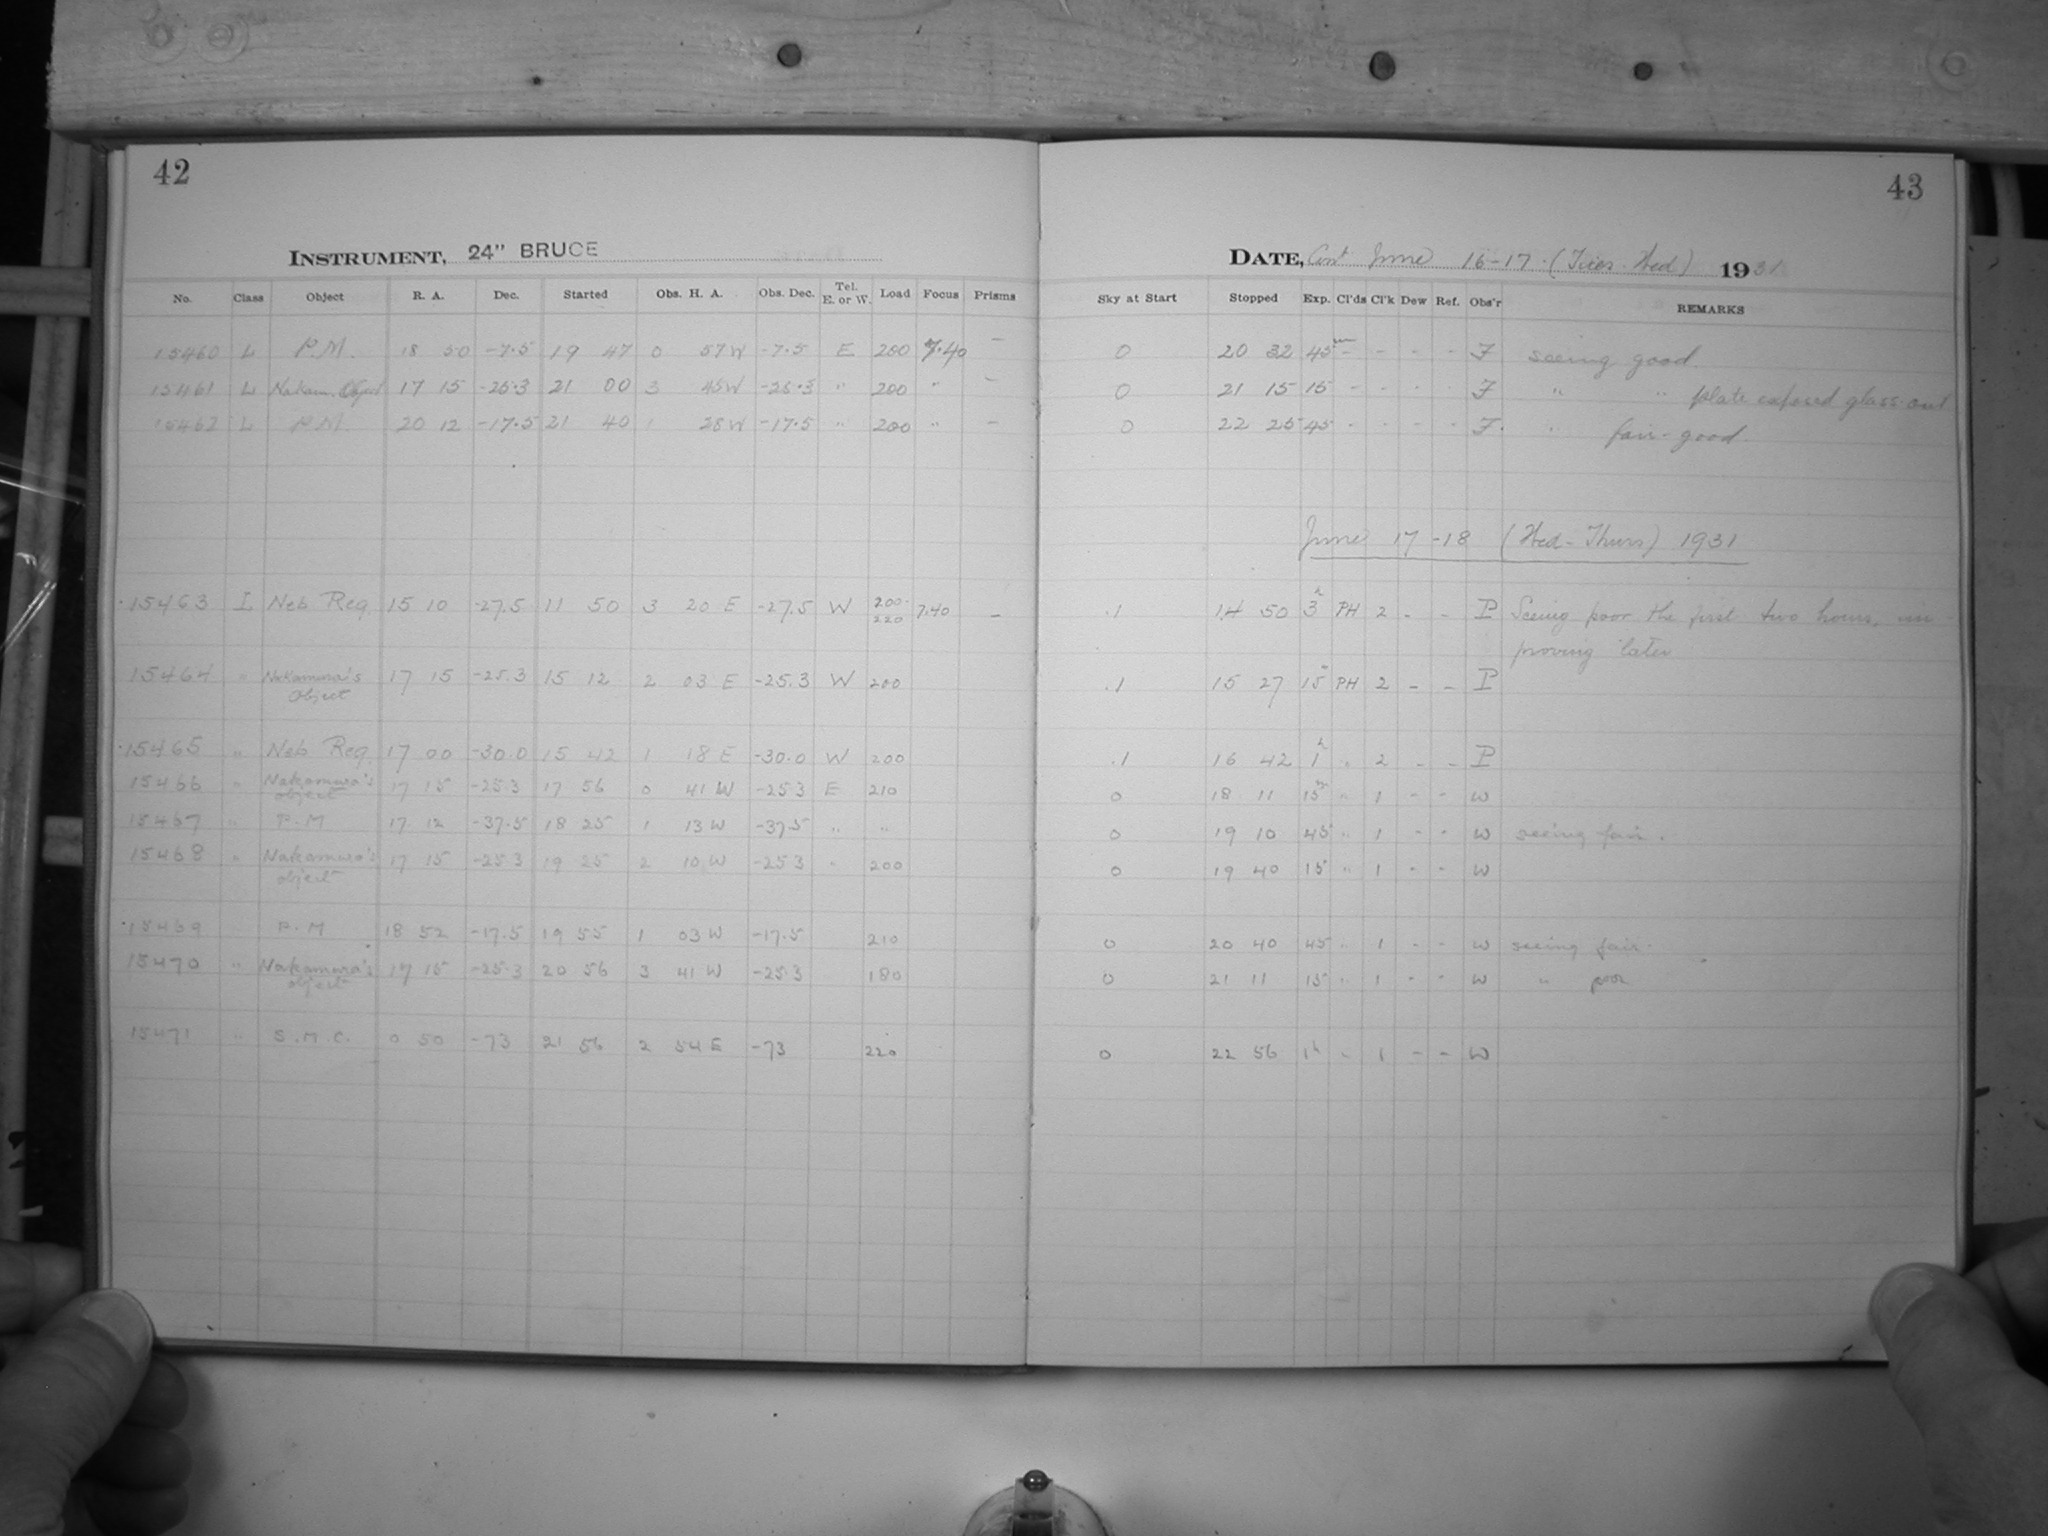 42
43
INSTRUMENT, 24" BRUCE
DATE, Cont June 16-17 (Tues-Wed) 1931
No. Class Object R. A. Dec. Started Obs. H. A. Obs. Dec. Tel. E. or W. Load Focus Prisms Sky at Start Stopped Exp. Cl'ds Cl'k Dew Ref. Obs'r REMARKS
15460 L P.M. 18 50 -7.5 19 47 0 57W -7.5 E 200 7.40 - 0 20 32 45m - - - - F seeing good.
15461 L Nakam. Object 17 15 -25.3 21 00 3 45W -25.3 " 200 " - 0 21 15 15 - - - - F " " plate exposed glass out
15462 L P.M. 20 12 -17.5 21 40 1 28W -17.5 " 200 " - 0 22 25 45 - - - - F. " fair-good.
June 17-18 (Wed-Thurs) 1931
15463 I Neb Reg. 15 10 -27.5 11 50 3 20 E -27.5 W 200- 220 7.40 - .1 14 50 3h PH 2 - - P Seeing poor the first two hours, im-
proving later
15464 " Nakamura's Object 17 15 -25.3 15 12 2 03 E -25.3 W 200 .1 15 27 15m PH 2 - - P
15465 " Neb Reg. 17 00 -30.0 15 42 1 18 E -30.0 W 200 .1 16 42 1h " 2 - - P
15466 " Nakamura's object 17 15 -25.3 17 56 0 41 W -25.3 E 210 0 18 11 15m " 1 - - W
15467 " P.M 17 12 -37.5 18 25 1 13 W -37.5 " " 0 19 10 45 " 1 - - W seeing fair.
15468 " Nakamura's object 17 15 -25.3 19 25 2 10 W -25.3 " 200 0 19 40 15 " 1 - - W
15469 P.M 18 52 -17.5 19 55 1 03 W -17.5 210 0 20 40 45 " 1 - - W seeing fair.
15470 " Nakamura's object 17 15 -25.3 20 56 3 41 W -25.3 180 0 21 11 15 " 1 - - W " poor
15471 " S.M.C. 0 50 -73 21 56 2 54 E -73 220 0 22 56 1h - 1 - - W